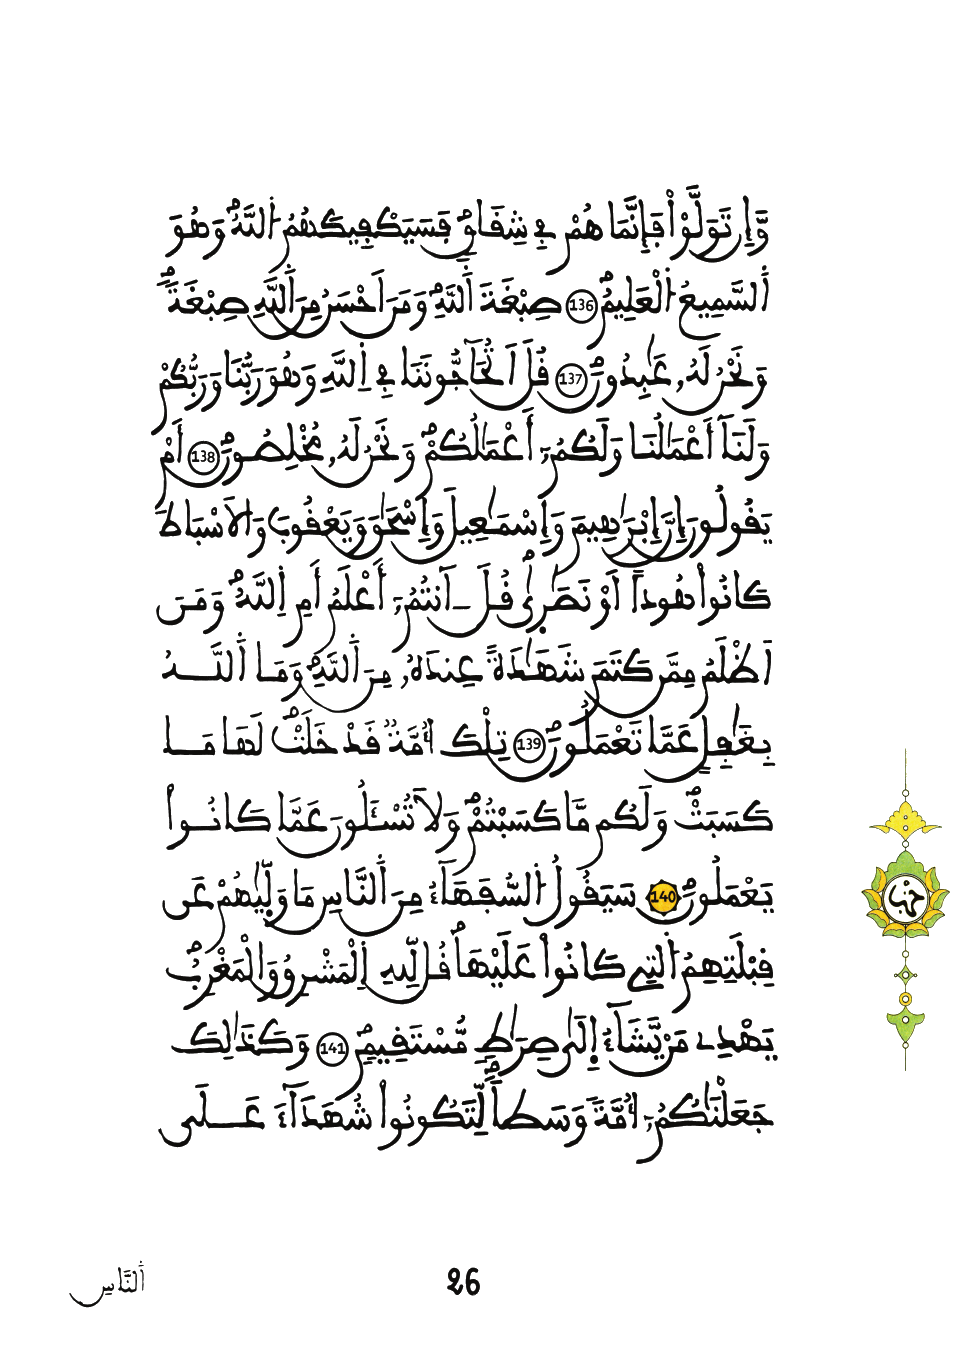 وَّإِن تَوَلَّوْاْ فَإِنَّمَا هُمْ فِے شِقَاقٖ فَسَيَكْفِيكَهُمُ اُ۬للَّهُۖ وَهُوَ
اَ۬لسَّمِيعُ اُ۬لْعَلِيمُۖ 136 صِبْغَةَ اَ۬للَّهِۖ وَمَنَ اَحْسَنُ مِنَ اَ۬للَّهِ صِبْغَةٗۖ
وَنَحْنُ لَهُۥ عَٰبِدُونَۖ 137 قُلَ اَتُحَآجُّونَنَا فِے اِ۬للَّهِ وَهُوَ رَبُّنَا وَرَبُّكُمْ
وَلَنَآ أَعْمَٰلُنَا وَلَكُمُۥٓ أَعْمَٰلُكُمْۖ وَنَحْنُ لَهُۥ مُخْلِصُونَۖ 138 أَمْ
يَقُولُونَ إِنَّ إِبْرَٰهِيمَ وَإِسْمَٰعِيلَ وَإِسْحَٰقَ وَيَعْقُوبَ وَالَاسْبَاطَ
كَانُواْ هُوداً اَوْ نَصَٰر۪ىٰۖ قُلَ ـ آنتُمُۥٓ أَعْلَمُ أَمِ اِ۬للَّهُۖ وَمَنَ
اَظْلَمُ مِمَّن كَتَمَ شَهَٰدَةً عِندَهُۥ مِنَ اَ۬للَّهِۖ وَمَا اَ۬للَّهُ
بِغَٰفِلٍ عَمَّا تَعْمَلُونَۖ 139 تِلْكَ أُمَّةٞ قَدْ خَلَتْۖ لَهَا مَا
كَسَبَتْۖ وَلَكُم مَّا كَسَبْتُمْۖ وَلَا تُسْـَٔلُونَ عَمَّا كَانُواْ
يَعْمَلُونَۖ 140 سَيَقُولُ اُ۬لسُّفَهَآءُ مِنَ اَ۬لنَّاسِ مَا وَلّ۪يٰهُمْ عَن
قِبْلَتِهِمُ اُ۬لتِے كَانُواْ عَلَيْهَاۖ قُل لِّلهِ اِ۬لْمَشْرِقُ وَالْمَغْرِبُۖ
يَهْدِے مَنْ يَّشَآءُ اِ۪لَىٰ صِرَٰطٖ مُّسْتَقِيمٖۖ 141 وَكَذَٰلِكَ
جَعَلْنَٰكُمُۥٓ أُمَّةٗ وَسَطاٗ لِّتَكُونُواْ شُهَدَآءَ عَلَى
حزب
26
اَ۬لنَّاسِ